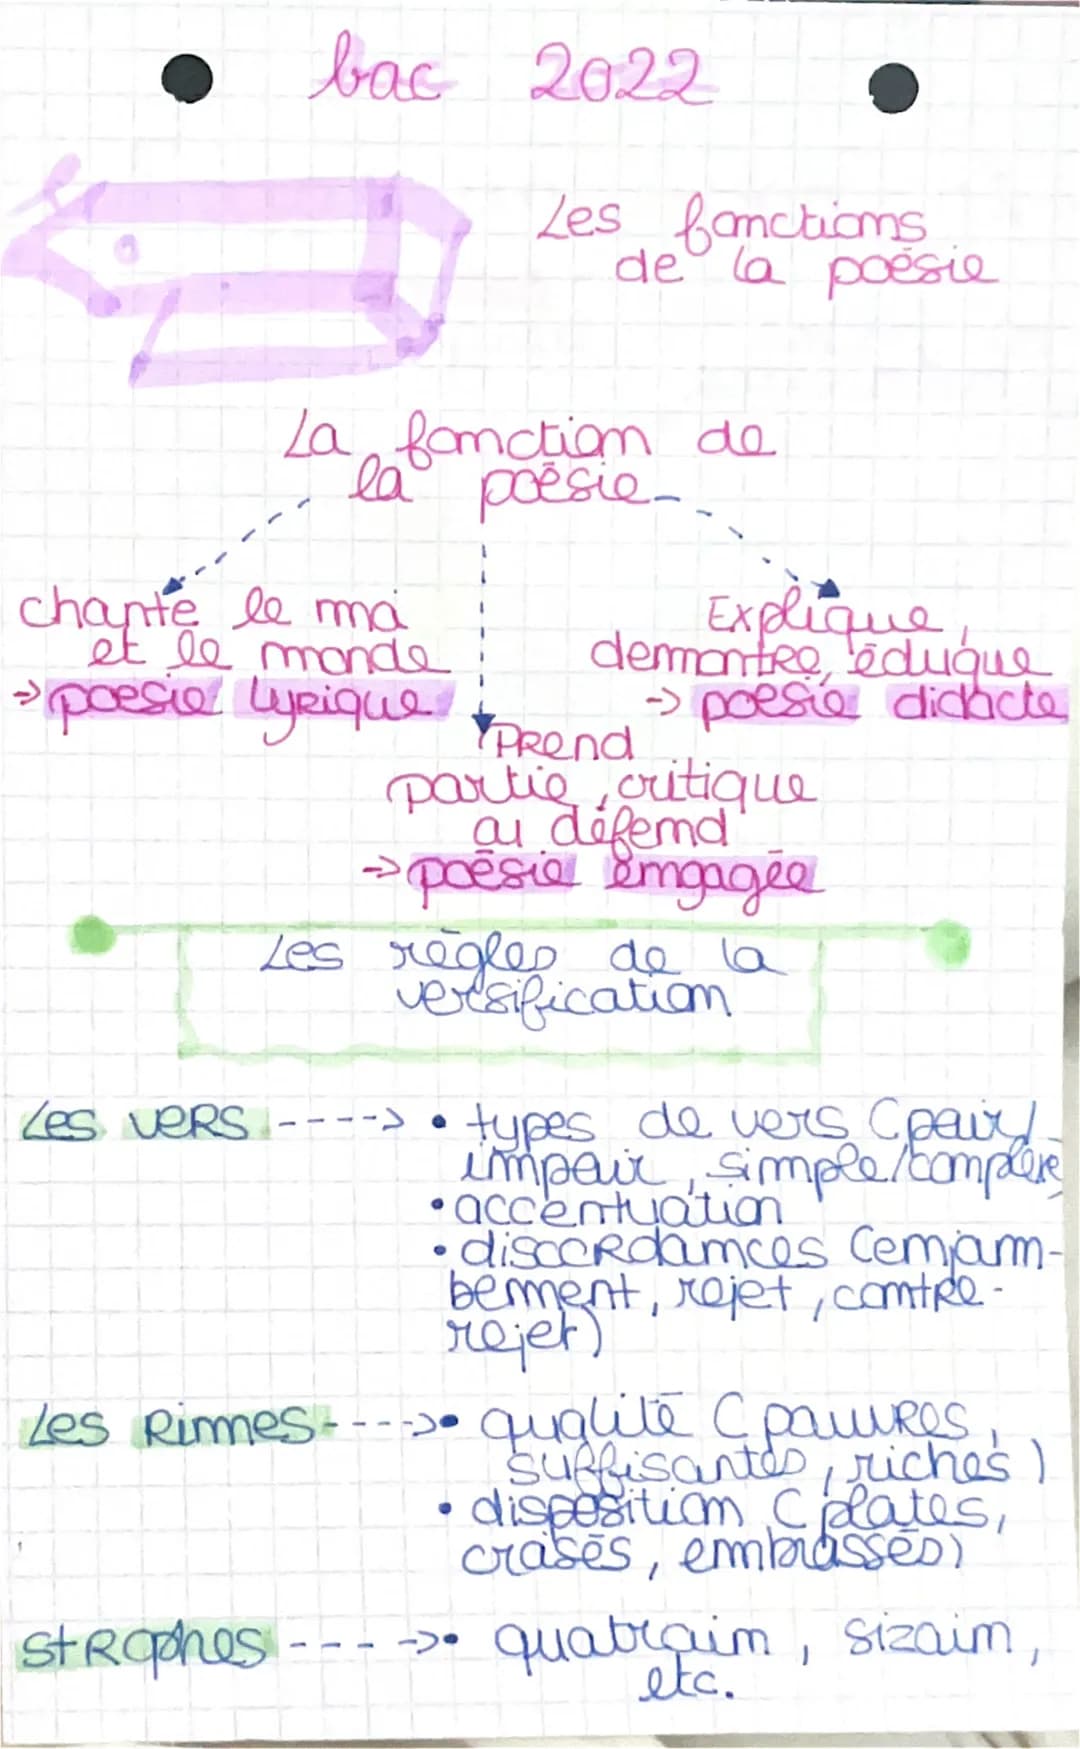 bac 2022
Les fonctions
de la poésie
La fonction de
la poésie
chante le moi
et le monde
-> poesie lyrique
Explique,
demontre, éduque
-> poesie didacte
Prend
partie, critique
ou défend
-> poésie engagée
Les règles de la
versification
Les vers ----> • types de vers (pair/
impair, simple/complexe)
• accentuation
• discordances (enjam-
bement, rejet, contre-
rejet)
Les Rimes ----> • qualité (pauvres,
suffisantes, riches)
• disposition (plates,
croisés, embrassés)
strophes ----> • quatrain, sizain,
etc.